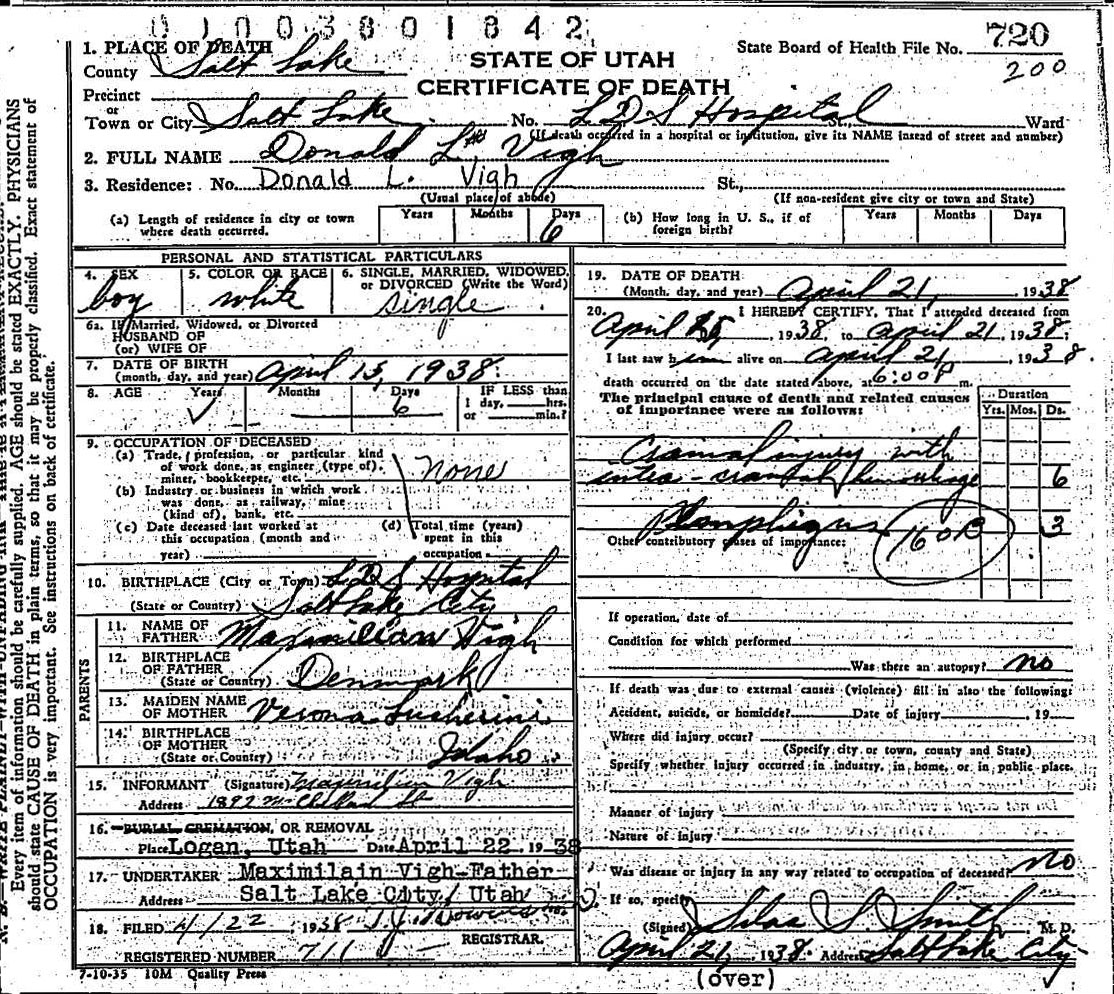 01003801842
1. PLACE OF DEATH
STATE OF UTAH
State Board of Health File No. 720
County Salt Lake
CERTIFICATE OF DEATH
200
Precinct
or
Town or City Salt Lake No. L D S Hospital St. Ward
(If death occurred in a hospital or institution, give its NAME instead of street and number)
2. FULL NAME Donald L. Vigh
3. Residence: No. Donald L. Vigh St.,
(Usual place of abode) (If non-resident give city or town and State)
(a) Length of residence in city or town where death occurred. Years Months Days 6
(b) How long in U. S., if of foreign birth? Years Months Days
PERSONAL AND STATISTICAL PARTICULARS
4. SEX 5. COLOR OR RACE 6. SINGLE, MARRIED, WIDOWED, OR DIVORCED (Write the Word)
boy white single
6a. If Married, Widowed, or Divorced
HUSBAND OF
(or) WIFE OF
7. DATE OF BIRTH
(month, day, and year) April 15, 1938
8. AGE Years Months Days IF LESS than
6 1 day, hrs.
or min.?
9. OCCUPATION OF DECEASED
(a) Trade, profession, or particular kind
of work done, as engineer (type of),
miner, bookkeeper, etc. none
(b) Industry or business in which work
was done, as railway, mine
(kind of), bank, etc.
(c) Date deceased last worked at
this occupation (month and
year)
(d) Total time (years)
spent in this
occupation
10. BIRTHPLACE (City or Town) L D S Hospital
(State or Country) Salt Lake City
PARENTS
11. NAME OF
FATHER Maximilian Vigh
12. BIRTHPLACE
OF FATHER
(State or Country) Denmark
13. MAIDEN NAME
OF MOTHER Verona Lucherini
14. BIRTHPLACE
OF MOTHER
(State or Country) Idaho
15. INFORMANT (Signature) Maximilian Vigh
Address 1892 McClelland St
16. BURIAL, CREMATION, OR REMOVAL
Place Logan, Utah Date April 22, 1938
17. UNDERTAKER Maximilain Vigh-Father
Address Salt Lake City, Utah
18. FILED 4/22 1938
REGISTRAR.
REGISTERED NUMBER 711
7-10-35 10M Quality Press
19. DATE OF DEATH
(Month, day, and year) April 21, 1938
20. I HEREBY CERTIFY, That I attended deceased from
April 15, 1938, to April 21, 1938.
I last saw him alive on April 21, 1938.
death occurred on the date stated above, at 6:00 P m.
The principal cause of death and related causes
of importance were as follows:
Duration
Yrs. Mos. Ds.
Cranial injury with
intra-cranial hemorrhage 6
Pemphigus 3
Other contributory causes of importance:
160B
If operation, date of
Condition for which performed
Was there an autopsy? no
If death was due to external causes (violence) fill in also the following:
Accident, suicide, or homicide? Date of injury , 19
Where did injury occur?
(Specify city or town, county and State)
Specify whether injury occurred in industry, in home, or in public place.
Manner of injury
Nature of injury
Was disease or injury in any way related to occupation of deceased? no
If so, specify
(Signed) Silas S. Smith M. D.
April 21, 1938. Address Salt Lake City
(over)
Every item of information should be carefully supplied. AGE should be stated EXACTLY. PHYSICIANS
should state CAUSE OF DEATH in plain terms, so that it may be properly classified. Exact statement of
OCCUPATION is very important. See instructions on back of certificate.